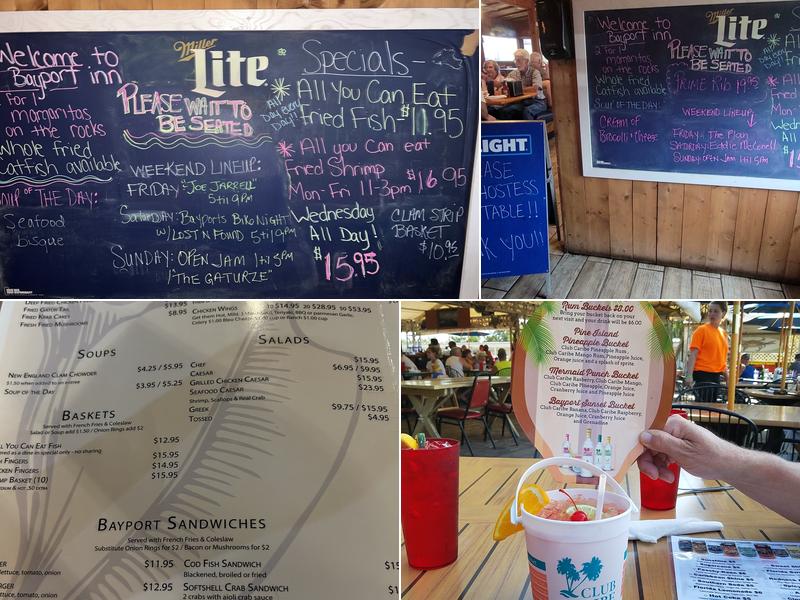 Welcome to
Bayport inn
2 for 1
margaritas
on the rocks
Whole fried
Catfish available
Soup of The Day:
Seafood
Bisque
Miller
Lite
PLEASE WAIT TO
BE SEATED
WEEKEND LINEUP:
FRIDAY "JOE JARRELL"
5 til 9 PM
Saturday: Bayports Bike Night
w/ LOST N FOUND 5 til 9 PM
SUNDAY: OPEN JAM 1 til 5 PM
"THE GATURZE"
Specials-
All You Can Eat
Fried Fish- $11.95
All Day Every Day!
All you can eat
Fried Shrimp
Mon-Fri 11-3pm $16.95
Wednesday
All Day!
$15.95
CLAM STRIP
BASKET
$10.95
Welcome to
Bayport inn
2 for 1
margaritas
on the rocks
Whole fried
Catfish available
SOUP OF THE DAY:
CREAM OF
Broccoli + Cheese
Miller
Lite
PLEASE WAIT TO
BE SEATED
PRIME RIB
WEEKEND LINEUP:
FRIDAY: The Plan
SATURDAY: Eddie McConnell
SUNDAY: OPEN JAM 1 til 5 PM
All
Fried
Mon
Wed
All
IGHT
EASE
HOSTESS
TABLE!!
K YOU!!
Fried Gator Tail
Fried Krab Cakey
Fresh Fried Mushrooms
$13.95
$8.95
Chicken Wings
10 $14.95 20 $28.95 50 $53.95
Celery $1.00 Bleu Cheese $1.00 cup or Ranch $1.00 cup
Soups
New England Clam Chowder
$4.25 / $5.95
$1.50 when added to an entree
Soup of the Day
$3.95 / $5.25
Salads
Chef
$15.95
Caesar
$6.95 / $9.95
Grilled Chicken Caesar
$15.95
Seafood Caesar
$23.95
Shrimp, Scallops & Real Crab
Greek
$9.75 / $15.95
Tossed
$4.95
Baskets
Served with French Fries & Coleslaw
Salad or Soup add $1.50 / Onion Rings add $2
ll You Can Eat Fish
$12.95
ered as a dine in special only - no sharing
h Fingers
$15.95
cken Fingers
$14.95
mp Basket (10)
$15.95
Bayport Sandwiches
Served with French Fries & Coleslaw
Substitute Onion Rings for $2 / Bacon or Mushrooms for $2
$11.95
lettuce, tomato, onion
Cod Fish Sandwich
Blackened, broiled or fried
$12.95
lettuce, tomato, onion
Softshell Crab Sandwich
2 crabs with aioli crab sauce
Rum Buckets $8.00
Bring your bucket back on your
next visit and your drink will be $6.00
Pine Island
Pineapple Bucket
Club Caribe Pineapple Rum,
Club Caribe Mango Rum, Pineapple Juice,
Orange Juice and a splash of sprite
Mermaid Punch Bucket
Club Caribe Raspberry, Club Caribe Mango,
Club Caribe Pineapple, Orange Juice,
Cranberry Juice and Pineapple Juice
Bayport Sunset Bucket
Club Caribe Banana, Club Caribe Raspberry,
Orange Juice, Cranberry Juice
and Grenadine
CLUB